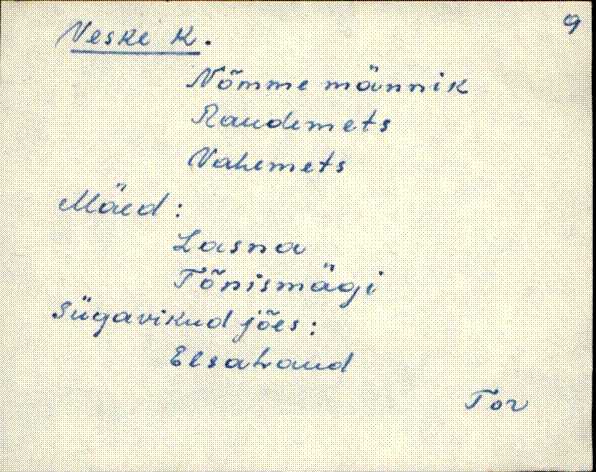 9
Veske K.
Nõmme männik
Raudemets
Vahemets
Mäed:
Lasna
Tõnismägi
Sügavikud jões:
Elsahaud
Tor